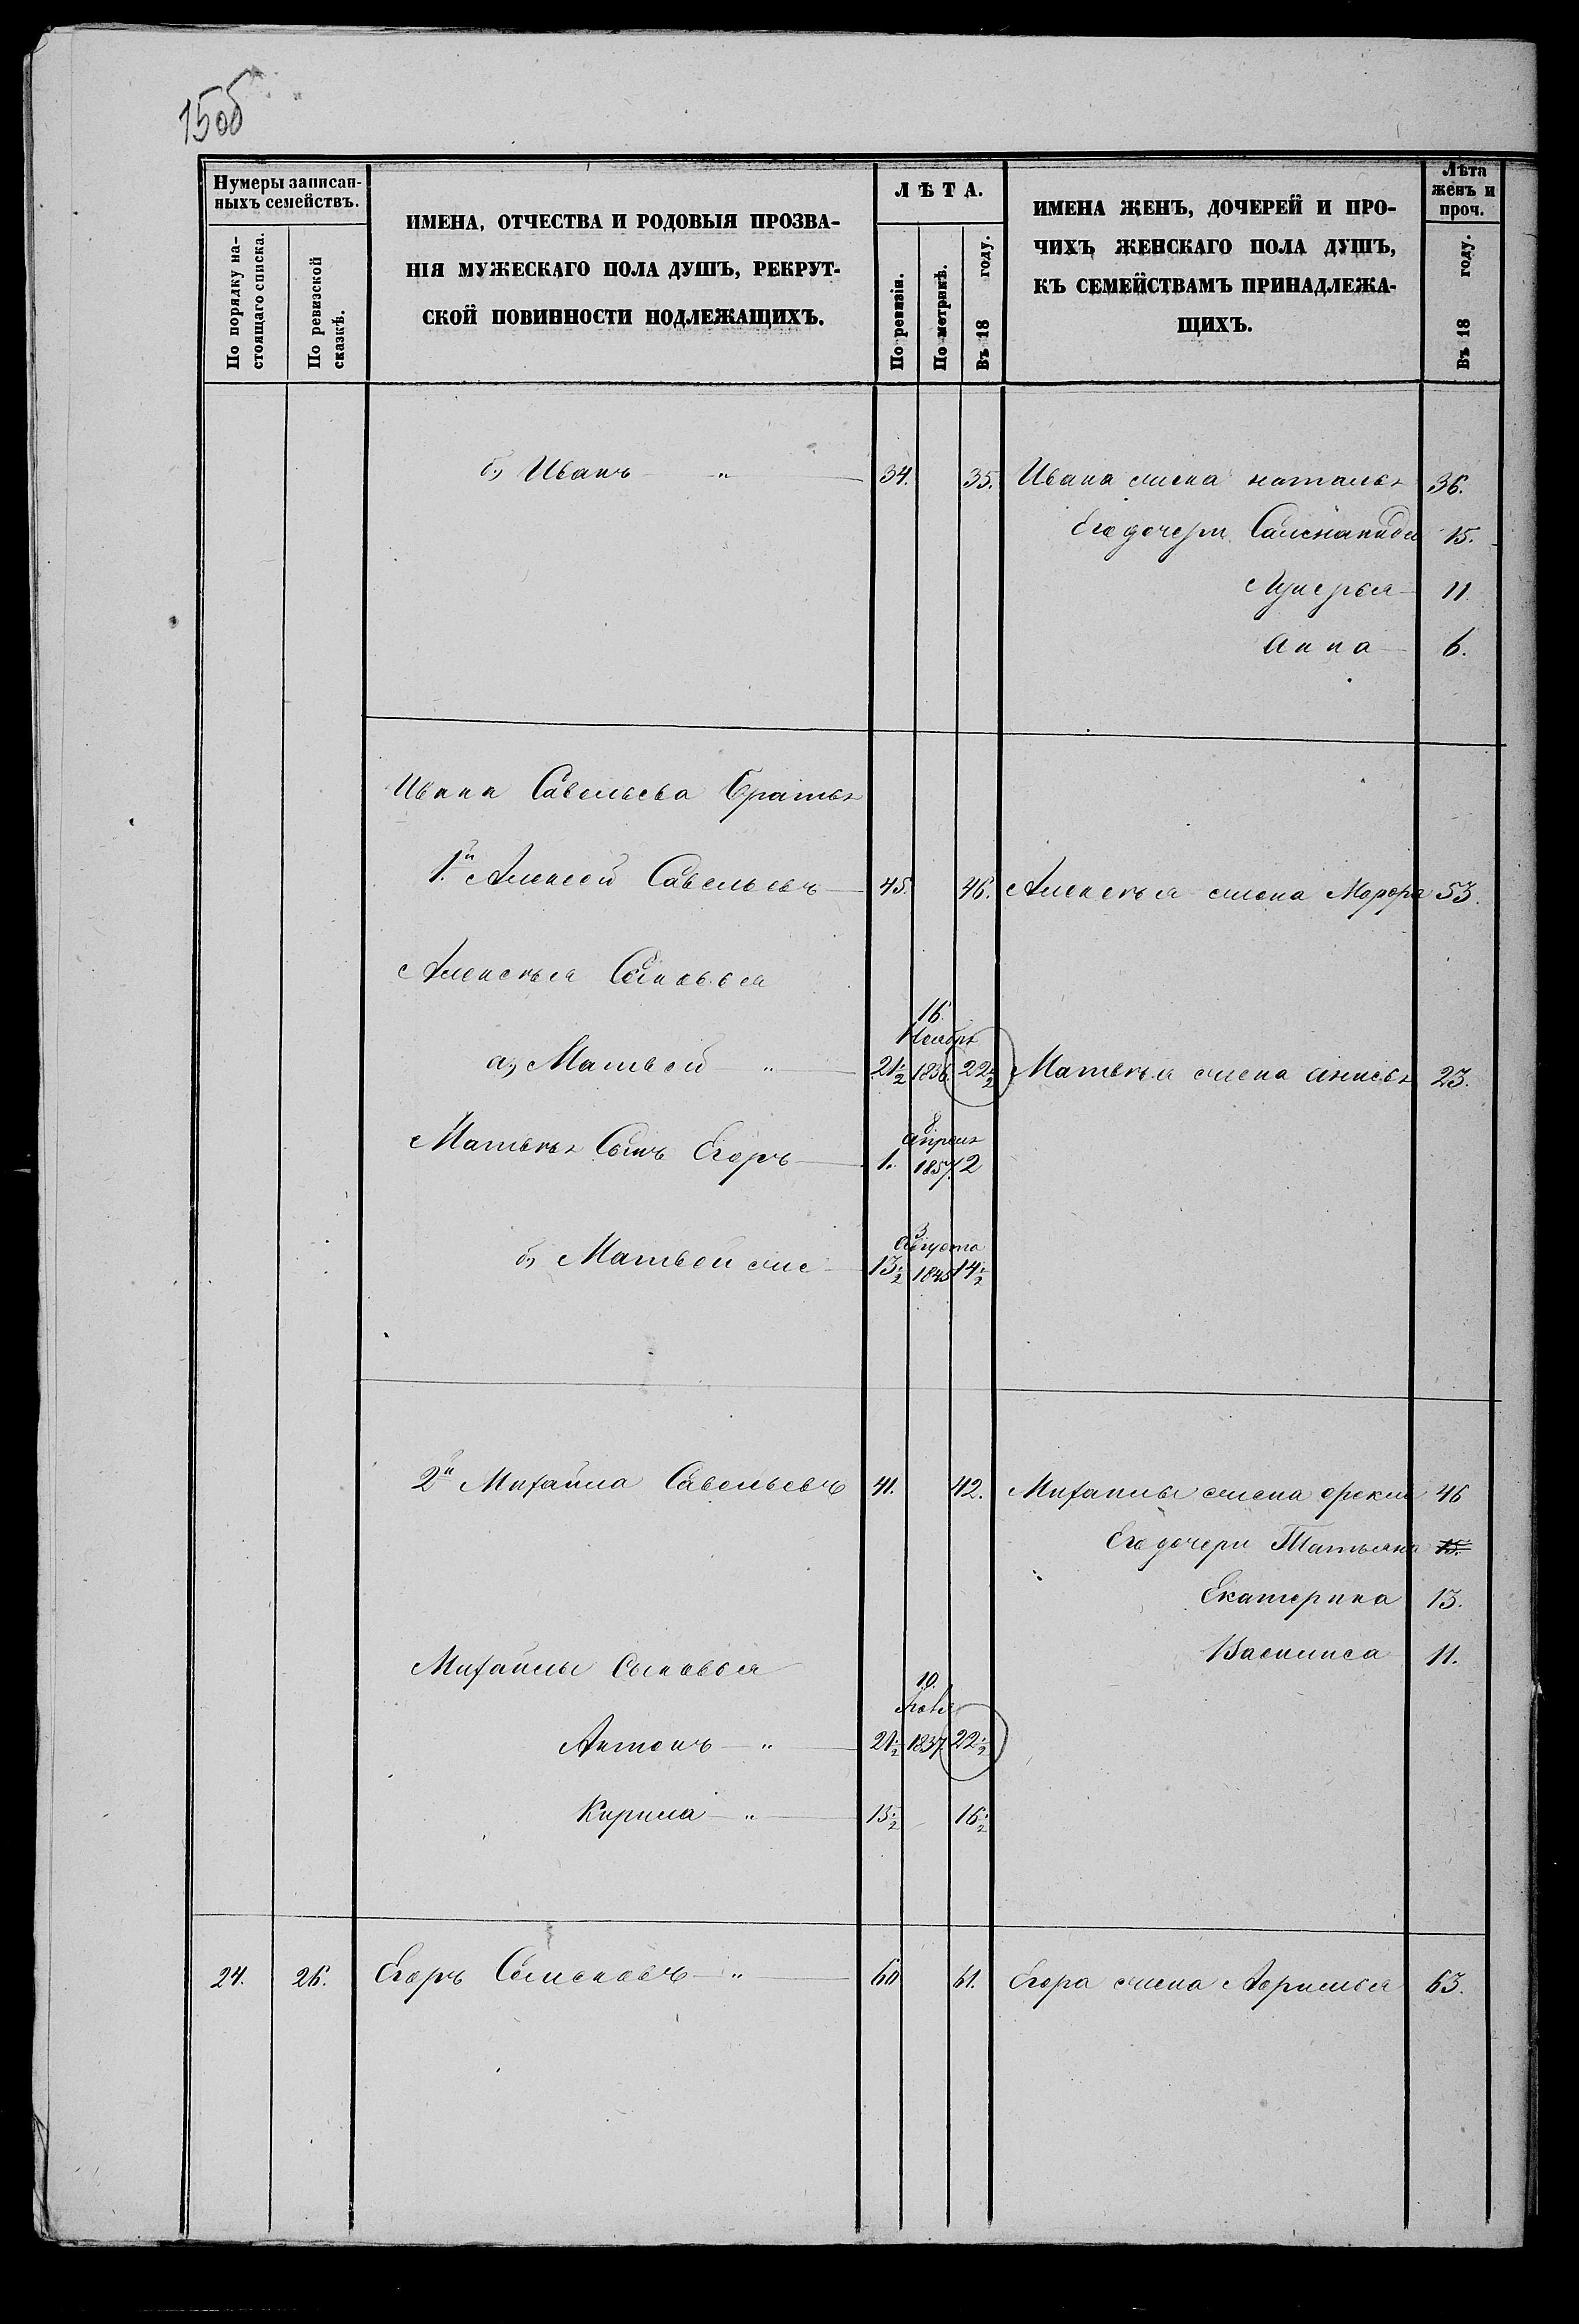 15об
Нумеры записан-
ныхъ семействъ.
По порядку на-
стоящаго списка.
По ревизской
сказкѣ.
ИМЕНА, ОТЧЕСТВА И РОДОВЫЯ ПРОЗВА-
НІЯ МУЖЕСКАГО ПОЛА ДУШЪ, РЕКРУТ-
СКОЙ ПОВИННОСТИ ПОДЛЕЖАЩИХЪ.
ЛѢТА.
По ревизіи.
По метрикѣ.
Въ 18 году.
ИМЕНА ЖЕНЪ, ДОЧЕРЕЙ И ПРО-
ЧИХЪ ЖЕНСКАГО ПОЛА ДУШЪ,
КЪ СЕМЕЙСТВАМЪ ПРИНАДЛЕЖА-
ЩИХЪ.
Лѣта
женъ и
проч.
Въ 18 году.
б, Иванъ " 34. 35. Ивана жена наталья 36.
Его дочери 15.
Лукерья 11
Анна 6.
Ивана Савельева братья
1.й Алексей Савельевъ 45. 46. Алексѣя жена Марфра 53.
Алексѣя Сыновья
16.
Ноября
а, Матвей " 21½ 1836. 22½ Матвѣя жена анисья 23.
8
апреля
Матвѣя Сынъ Егоръ 1. 1857. 2
3
августа
б, Матвей же 13½ 1845 14½
2й Михайла Савельевъ 41. 42. Михайлы жена фекла 46
Его дочери Татьяна 15.
Екатерина 13.
Михайлы Сыновья Василиса 11.
10.
Антонъ " 21½ 1837. 22½
Кирила " 15½ 16½
24. 26. Егоръ Семеновъ " 60 61. Егора жена 63.